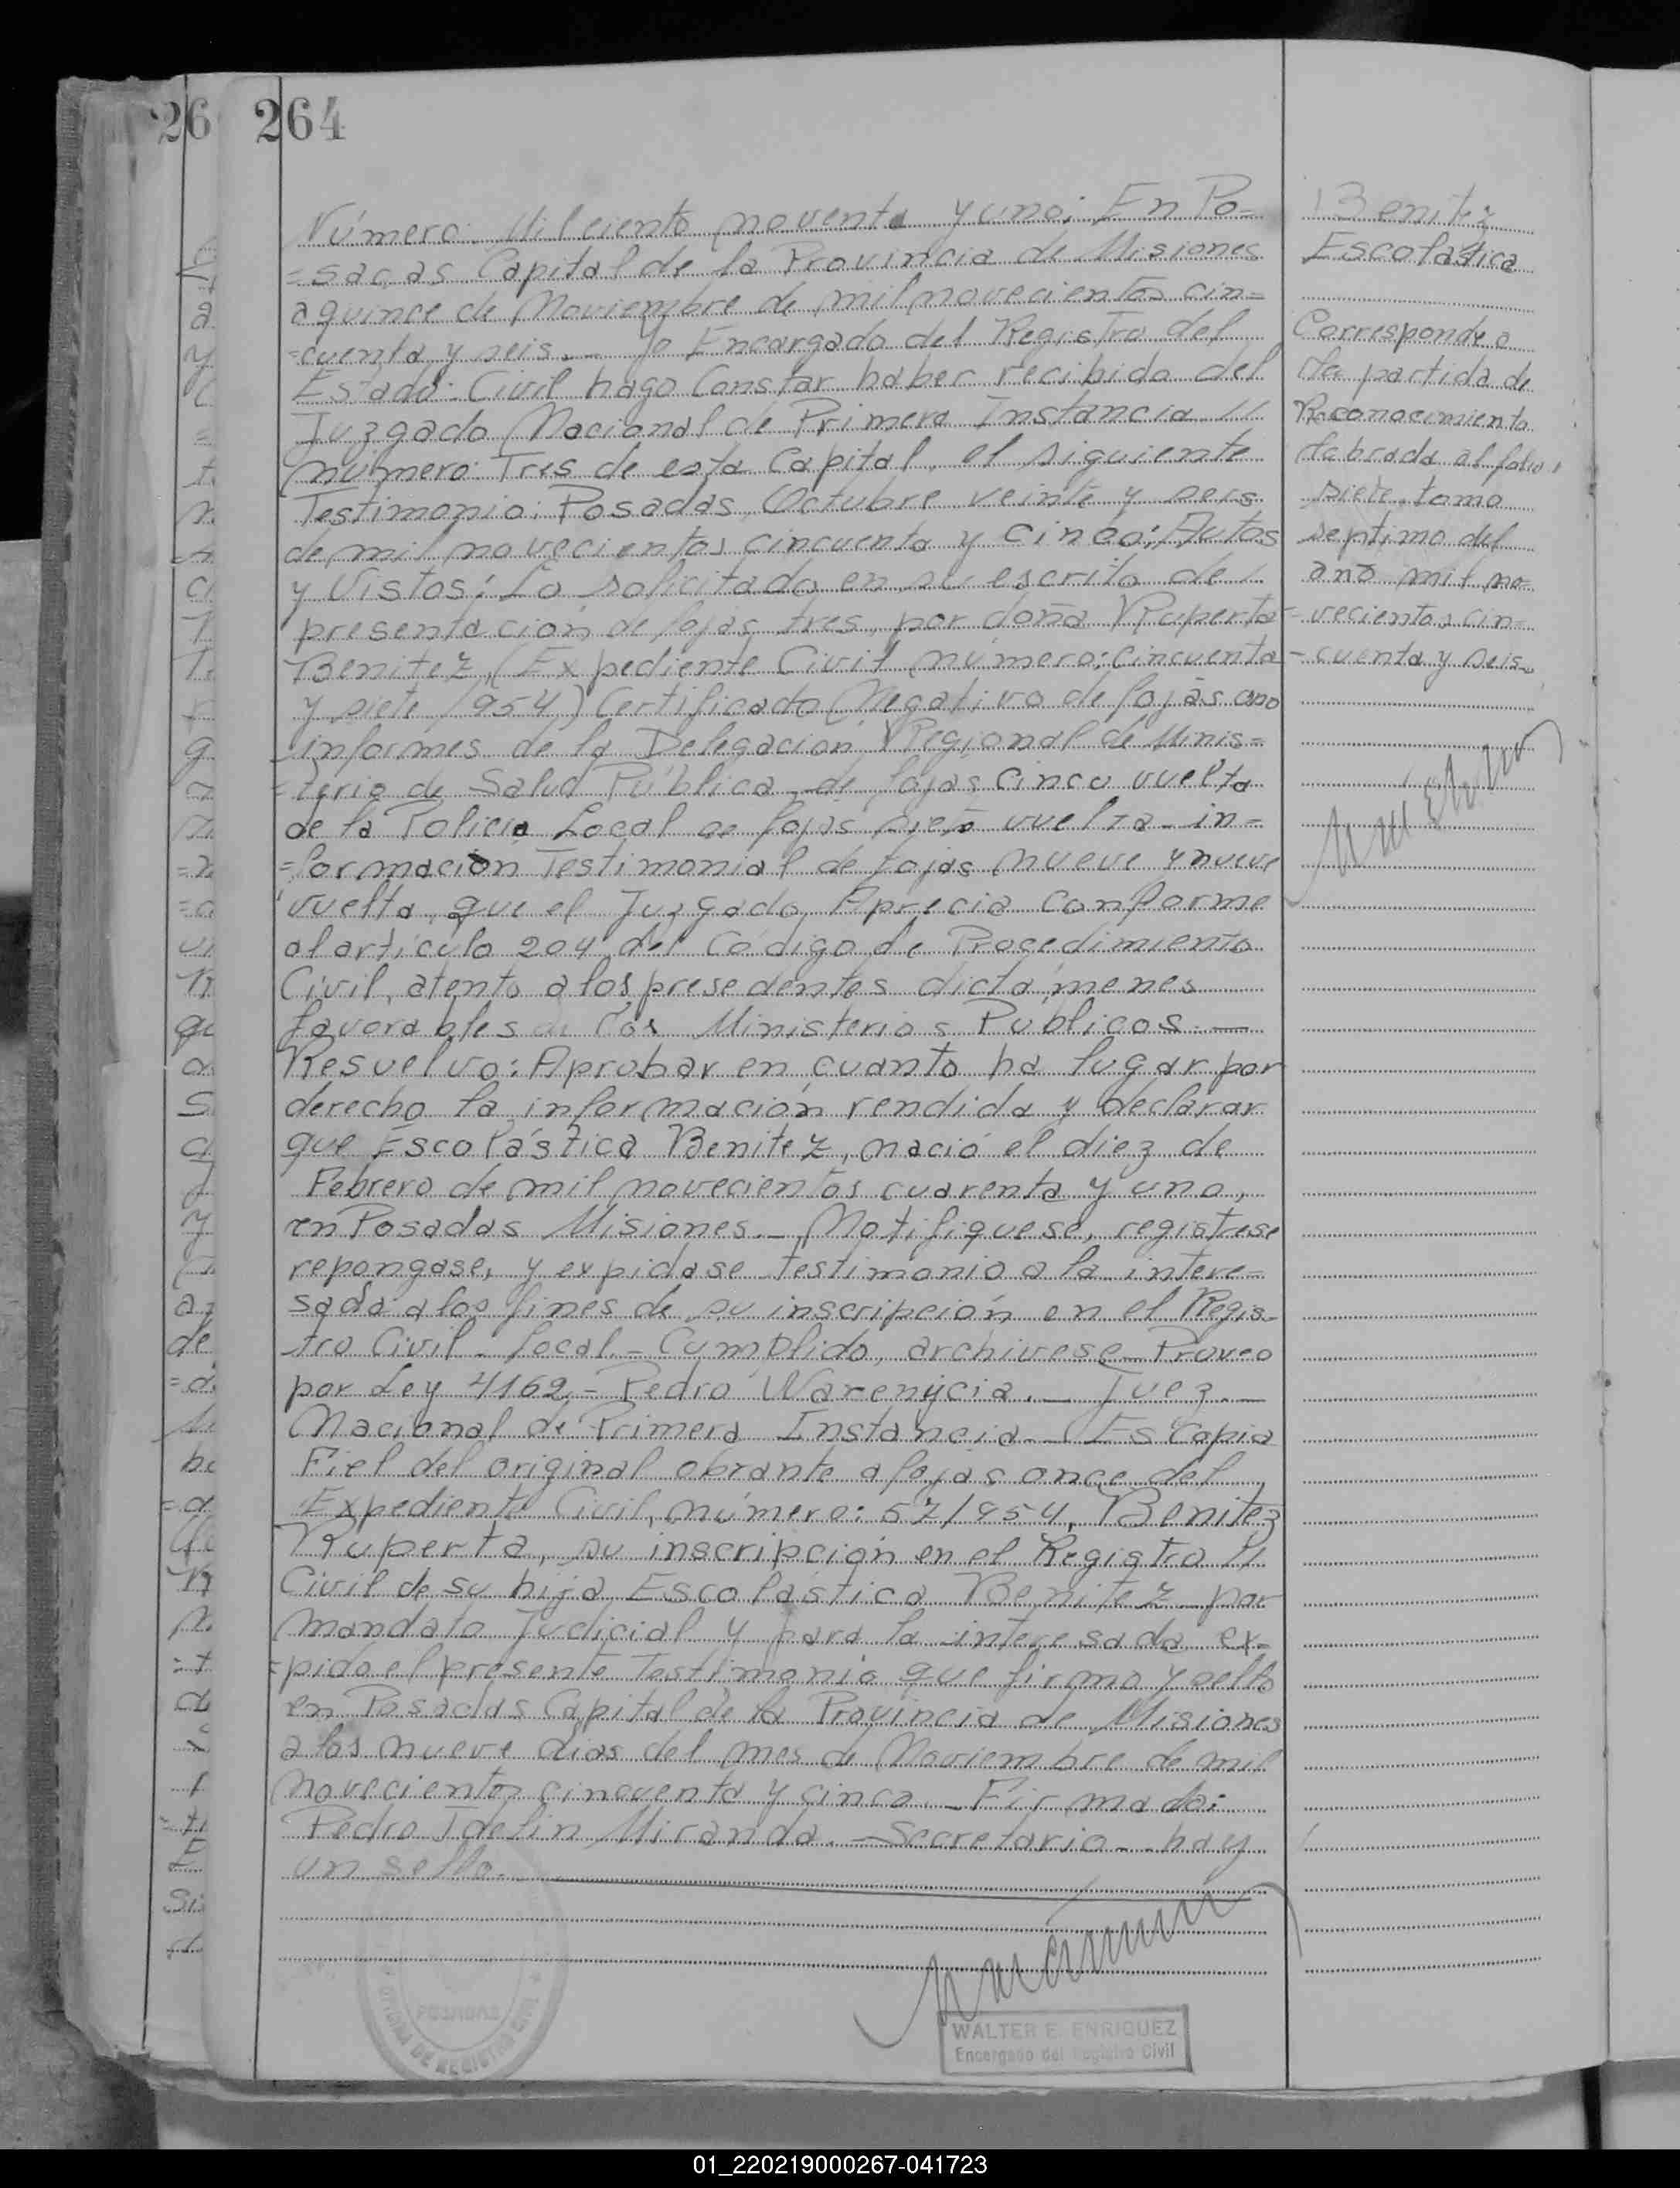 264
Número: Mil ciento noventa y uno: En Po=
=sadas Capital de la Provincia de Misiones
a quince de Noviembre de mil novecientos cin=
=cuenta y seis._ Yo Encargado del Registro del
Estado Civil hago Constar haber recibido del
Juzgado Nacional de Primera Instancia //
número: Tres de esta Capital, el siguiente
Testimonio: Posadas, Octubre veinte y seis
de mil novecientos cincuenta y cinco: Autos
y Vistos: Lo solicitado en su escrito de
presentación de fojas tres, por doña Ruperta
Benitez, (Expediente Civil número: cincuenta
y siete/954) Certificado Negativo de fojas uno
informes de la Delegación Regional de Minis=
=terio de Salud Pública de fojas cinco vuelta
de la Policia Local de fojas siete vuelta in=
=formación Testimonial de fojas nueve y nueve
vuelta, que el Juzgado, Aprecia conforme
al artículo 204 del Código de Procedimiento
Civil, atento a los presedentes dictámenes
favorables de los Ministerios Publicos.—
Resuelvo: Aprobar en cuanto ha lugar por
derecho la información rendida y declarar
que Escolástica Benitez, nació el diez de
Febrero de mil novecientos cuarenta y uno,
en Posadas Misiones._ Notifiquese, registrese
repongase, y expidase testimonio a la intere=
sada a los fines de su inscripción en el Regis-
tro Civil local.- Cumplido, archivese Proveo
por Ley 4162.- Pedro Warenycia._ Juez_
Nacional de Primera Instancia._ Es Copia
Fiel del original obrante a fojas once del
Expediente Civil, número: 57/954, Benitez
Ruperta, su inscripción en el Registro //
Civil de su hija Escolástica Benitez por
mandato Judicial y para la interesada ex=
=pido el presente Testimonio que firmo y sello
en Posadas Capital de la Provincia de Misiones
a los nueve dias del mes de Noviembre de mil
novecientos cincuenta y cinco._ Firmado:
Pedro Idelin Miranda._ Secretario._ hay
un sello._
Benitez
Escolástica
Corresponde a
la partida de
Reconocimiento
labrada al folio
siete tomo
septimo del
año mil no
=vecientos cin=
=cuenta y seis_
POSADAS
OFICINA DE REGISTRO CIVIL
WALTER E. ENRIQUEZ
Encargado del Registro Civil
01_220219000267-041723